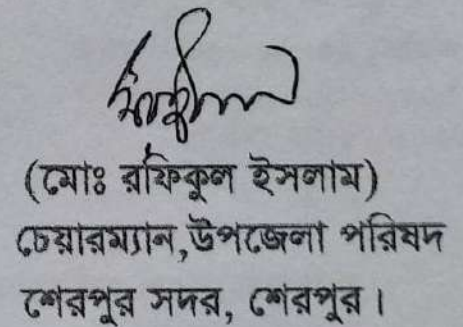 (মোঃ রফিকুল ইসলাম)
চেয়ারম্যান,উপজেলা পরিষদ
শেরপুর সদর, শেরপুর।